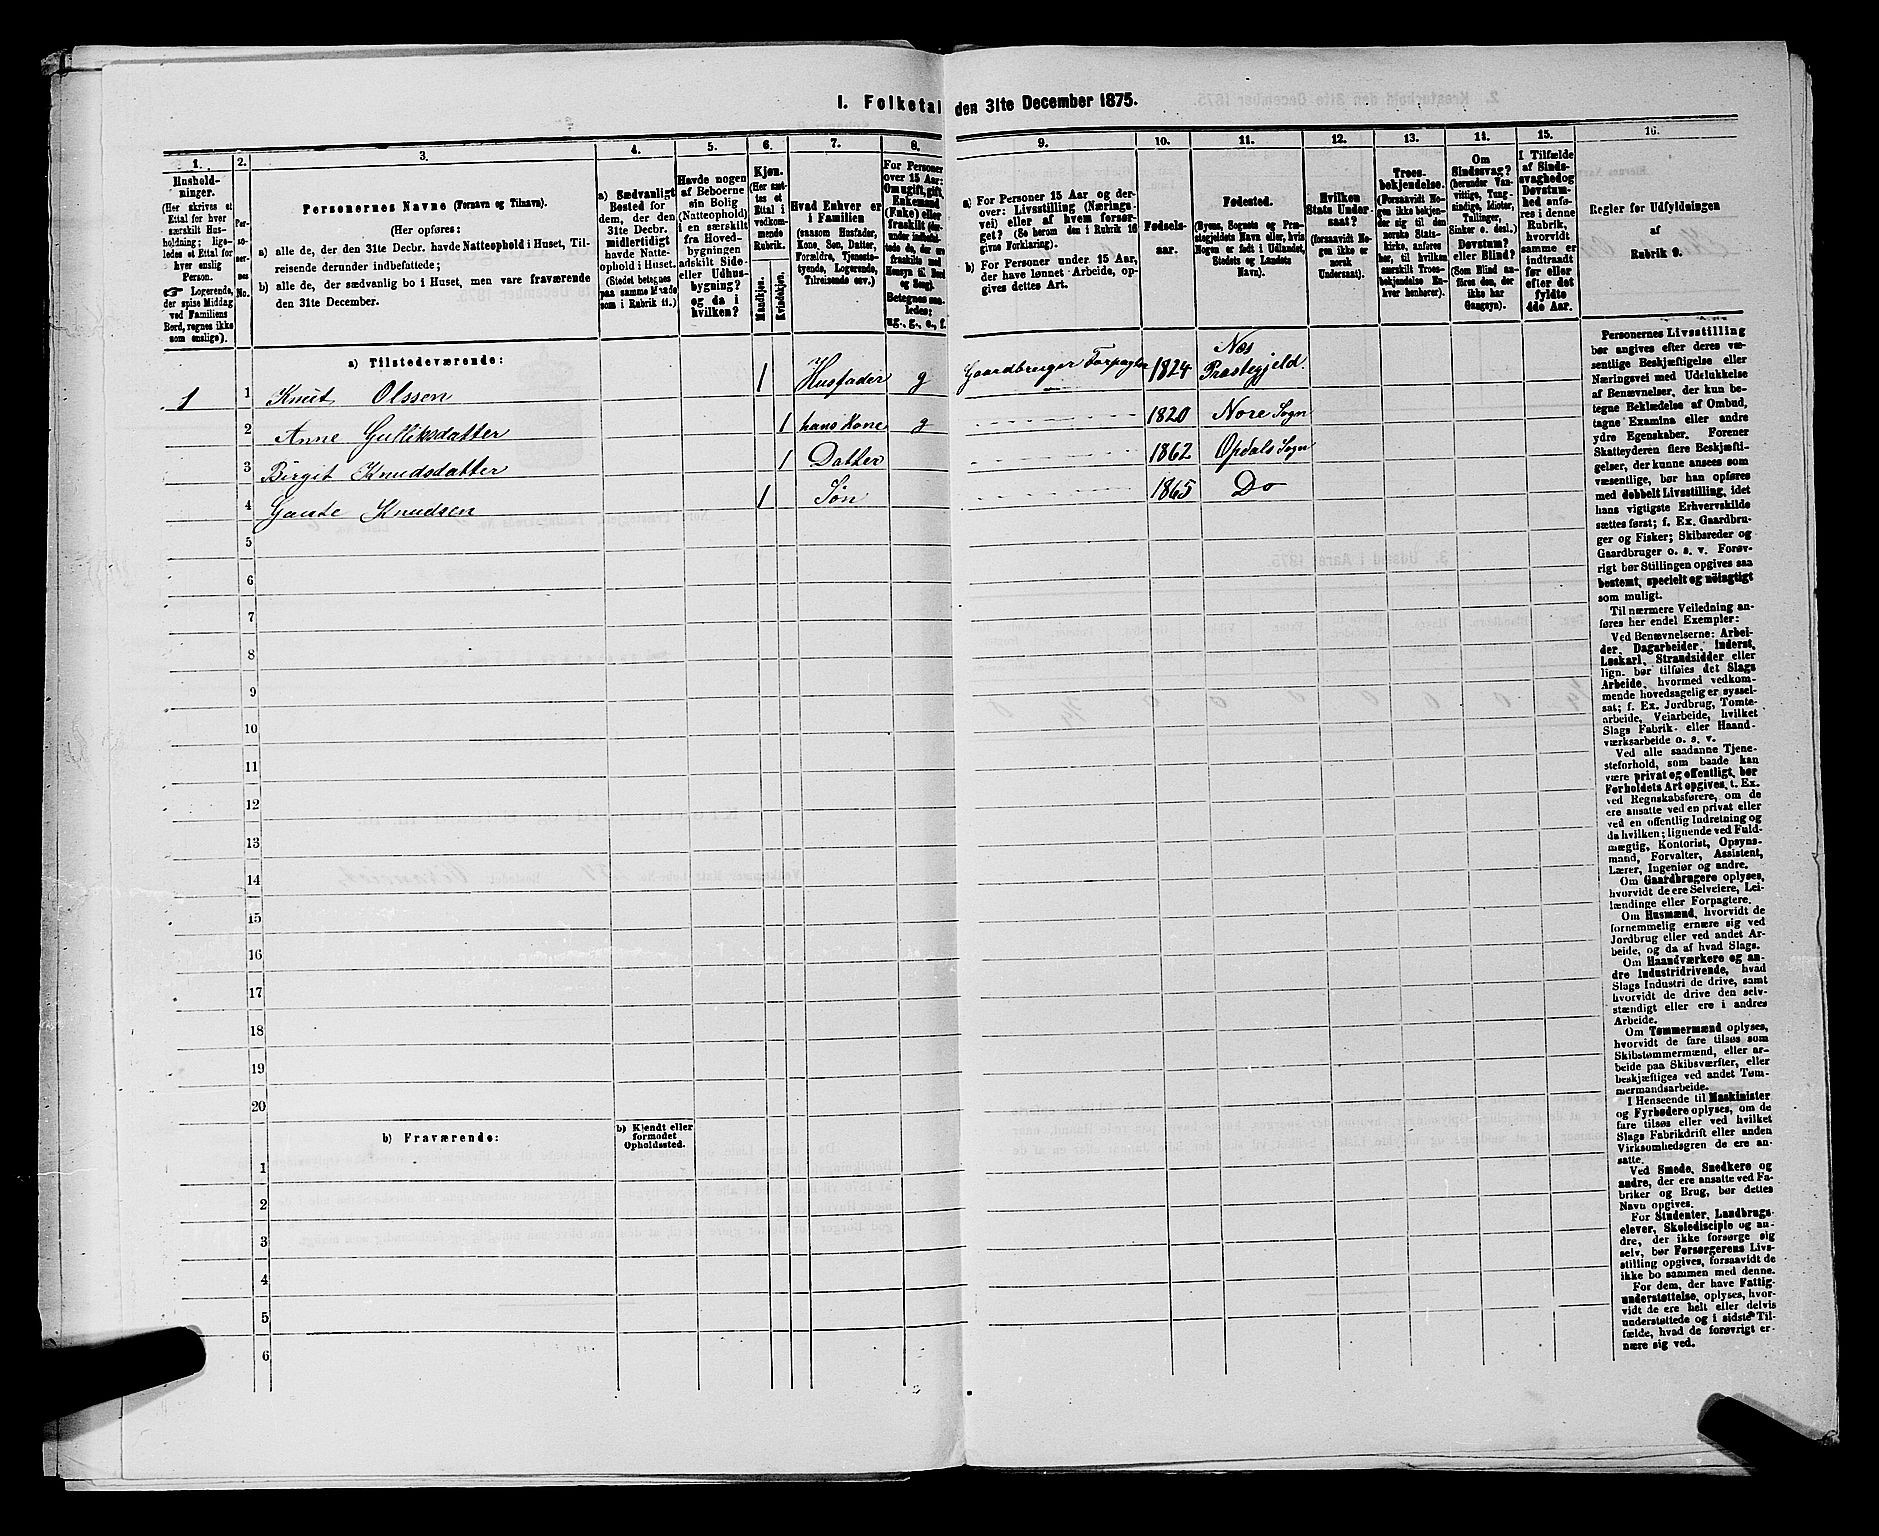 I. Folketal den 31te December 1875.
1.
2.
3.
4.
5.
6.
7.
8.
9.
10.
11.
12.
13.
14.
15.
16.
Hushold-
ninger.
(Her skrives et
Ettal for hver
særskilt Hus-
holdning; lige-
ledes et Ettal for
hver enslig
Person.
☞ Logerende,
der spise Middag
ved Familiens
Bord, regnes ikke
som enslige).
Per-
so-
ner-
nes
No.
Personernes Navne (Fornavn og Tilnavn).
(Her opføres:
a) alle de, der den 31te Decbr. havde Natteophold i Huset, Til-
reisende derunder indbefattede;
b) alle de, der sædvanlig bo i Huset, men vare fraværende
den 31te December.
a) Sædvanligt
Bosted for
dem, der den
31te Decbr.
midlertidigt
havde Natte-
ophold i Huset.
(Stedet betegnes
paa samme Maade
som i Rubrik 11.)
Havde nogen
af Beboerne
sin Bolig
(Natteophold)
i en særskilt
fra Hoved-
bygningen
adskilt Side-
eller Udhus-
bygning?
og da i
hvilken?
Kjøn.
(Her sæt-
tes et
Ettal i
vedkom-
mende
Rubrik.
Mandkjøn.
Kvindekjøn.
Hvad Enhver er
i Familien
(saasom Husfader,
Kone, Søn, Datter,
Forældre, Tjeneste-
tyende, Logerende,
Tilreisende osv.)
For Personer
over 15 Aar:
Om ugift, gift,
Enkemand
(Enke) eller
fraskilt (der-
under indbefat-
tede de, der ere
fraskilte med
Hensyn til Bord
og Seng).
Betegnes saa-
ledes:
ug., g., e., f.
a) For Personer 15 Aar og der-
over: Livsstilling (Nærings-
vei) eller af hvem forsør-
get? (Se herom den i Rubrik 16
givne Forklaring).
b) For Personer under 15 Aar,
der have lønnet Arbeide, op-
gives dettes Art.
Fødsels-
aar.
Fødested.
(Byens, Sognets og Præ-
stegjeldets Navn eller, hvis
Nogen er født i Udlandet,
Stedets og Landets
Navn).
Hvilken
Stats Under-
saat?
(forsaavidt No-
gen ikke er
norsk
Undersaat).
Troes-
bekjendelse.
(Forsaavidt No-
gen ikke bekjen-
der sig til den
norske Stats-
kirke, anføres
her, til hvilken
særskilt Troes-
bekjendelse En-
hver henhører).
Om
Sindssvag?
(herunder Van-
vittige, Tung-
sindige, Idioter,
Tullinger,
Sinker o. desl.)
Døvstum?
eller Blind?
(Som Blind an-
føres den, der
ikke har
Gangsyn).
I Tilfælde
af Sinds-
svaghed og
Døvstum-
hed anfø-
res i denne
Rubrik,
hvorvidt
samme er
indtraadt
før eller
efter det
fyldte
4de Aar.
Regler for Udfyldningen
af
Rubrik 9.
a) Tilstedeværende:
1 1 Knut Olssen 1 Husfader g Gaardbruger Forpagter 1824 Næs Præstegjeld.
2 Anne Gulliksdatter 1 hans Kone g 1820 Nore Sogn
3 Birgit Knudsdatter 1 Datter 1862 Opdals Sogn
4 Gaute Knudsen 1 Søn 1865 Do
5
6
7
8
9
10
11
12
13
14
15
16
17
18
19
20
b) Fraværende:
b) Kjendt eller
formodet
Opholdssted.
1
2
3
4
5
6
Personernes Livsstilling
bør angives efter deres væ-
sentlige Beskjæftigelse eller
Næringsvei med Udelukkelse
af Benævnelser, der kun be-
tegne Beklædelse af Ombud,
tagne Examina eller andre
ydre Egenskaber. Forener
Skatteyderen flere Beskjæfti-
gelser, der kunne ansees som
væsentlige, bør han opføres
med dobbelt Livsstilling, idet
hans vigtigste Erhvervskilde
sættes først; f. Ex. Gaardbru-
ger og Fisker; Skibsreder og
Gaardbruger o. s. v. Forøv-
rigt bør Stillingen opgives saa
bestemt, specielt og nöiagtigt
som muligt.
Til nærmere Veiledning an-
føres her endel Exempler:
Ved Benævnelserne: Arbei-
der, Dagarbeider, Inderst,
Løskarl, Strandsidder eller
lign. bør tilføies det Slags
Arbeide, hvormed vedkom-
mende hovedsagelig er syssel-
sat; f. Ex. Jordbrug, Tomte-
arbeide, Veiarbeide, hvilket
Slags Fabrik- eller Haand-
værksarbeide o. s. v.
Ved alle saadanne Tjene-
steforhold, som baade kan
være privat og offentligt, bør
Forholdets Art opgives, t. Ex.
ved Regnskabsførere, om de
ere ansatte ved en privat eller
ved en offentlig Indretning og
da hvilken; lignende ved Fuld-
mægtig, Kontorist, Opsyns-
mand, Forvalter, Assistent,
Lærer, Ingeniør og andre.
Om Gaardbrugere oplyses,
hvorvidt de ere Selveiere, Lei-
lændinge eller Forpagtere.
Om Husmænd, hvorvidt de
fornemmelig ernære sig ved
Jordbrug eller ved andet Ar-
beide, og da af hvad Slags.
Om Haandværkere og an-
dre Industridrivende, hvad
Slags Industri de drive, samt
hvorvidt de drive den selv-
stændigt eller ere i andres
Arbeide.
Om Tømmermænd oplyses,
hvorvidt de fare tilsøs som
Skibstømmermænd, eller ar-
beide paa Skibsværfter, eller
beskjæftiges ved andet Tøm-
mermandsarbeide.
I Henseende til Maskinister
og Fyrbødere oplyses, om de
fare tilsøs eller ved hvilket
Slags Fabrikdrift eller anden
Virksomhedsgren de ere an-
satte.
Ved Smede, Snedkere og
andre, der ere ansatte ved Fa-
briker og Brug, bør dettes
Navn opgives.
For Studenter, Landbrugs-
elever, Skoledisciple og an-
dre, der ikke forsørge sig
selv, bør Forsørgerens Livs-
stilling opgives, forsaavidt de
ikke bo sammen med denne.
For dem, der have Fattig-
understøttelse, oplyses, hvor-
vidt de ere helt eller delvis
understøttede og i sidste Til-
fælde, hvad de forøvrigt er-
nære sig ved.